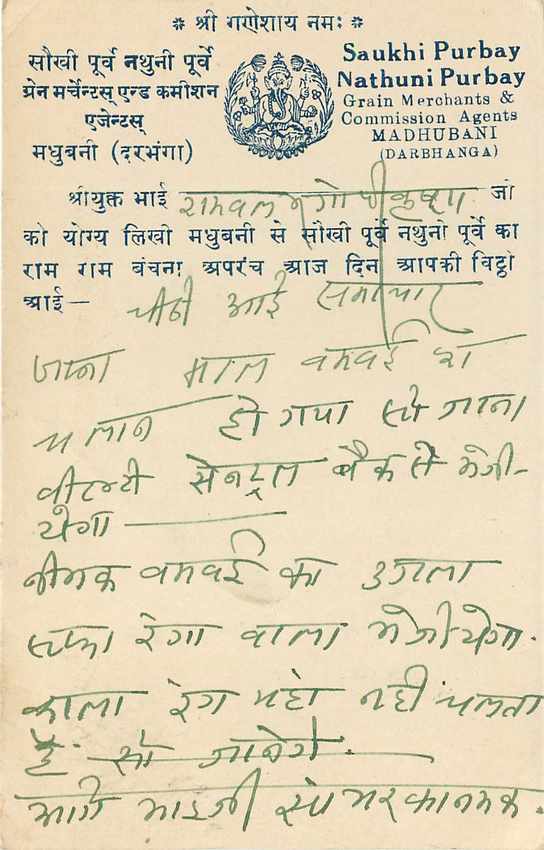 ❉ श्री गणेशाय नमः ❉
सौखी पूर्व नथुनी पूर्वे
ग्रेन मर्चेन्टस् एन्ड कमीशन
एजेन्टस्
मधुबनी (दरभंगा)
Saukhi Purbay
Nathuni Purbay
Grain Merchants &
Commission Agents
MADHUBANI
(DARBHANGA)
श्रीयुक्त भाई गोपीकृष्ण जी
को योग्य लिखी मधुबनी से सौखी पूर्वे नथुनी पूर्वे का
राम राम बंचना अपरंच आज दिन आपकी चिट्ठी
आई— चीठी आई समाचार
जाना माल बमबई का
चलान हो गया सो जाना
बीलटी सेनट्रल बैंक से भेजी-
येगा
नीमक बमबई का उजला
सफा रंगा वाला भेजीयेगा.
काला रंग यहां नही चलता
है. सो जानेगे.
आगे भाइजी सांभर का नमक.